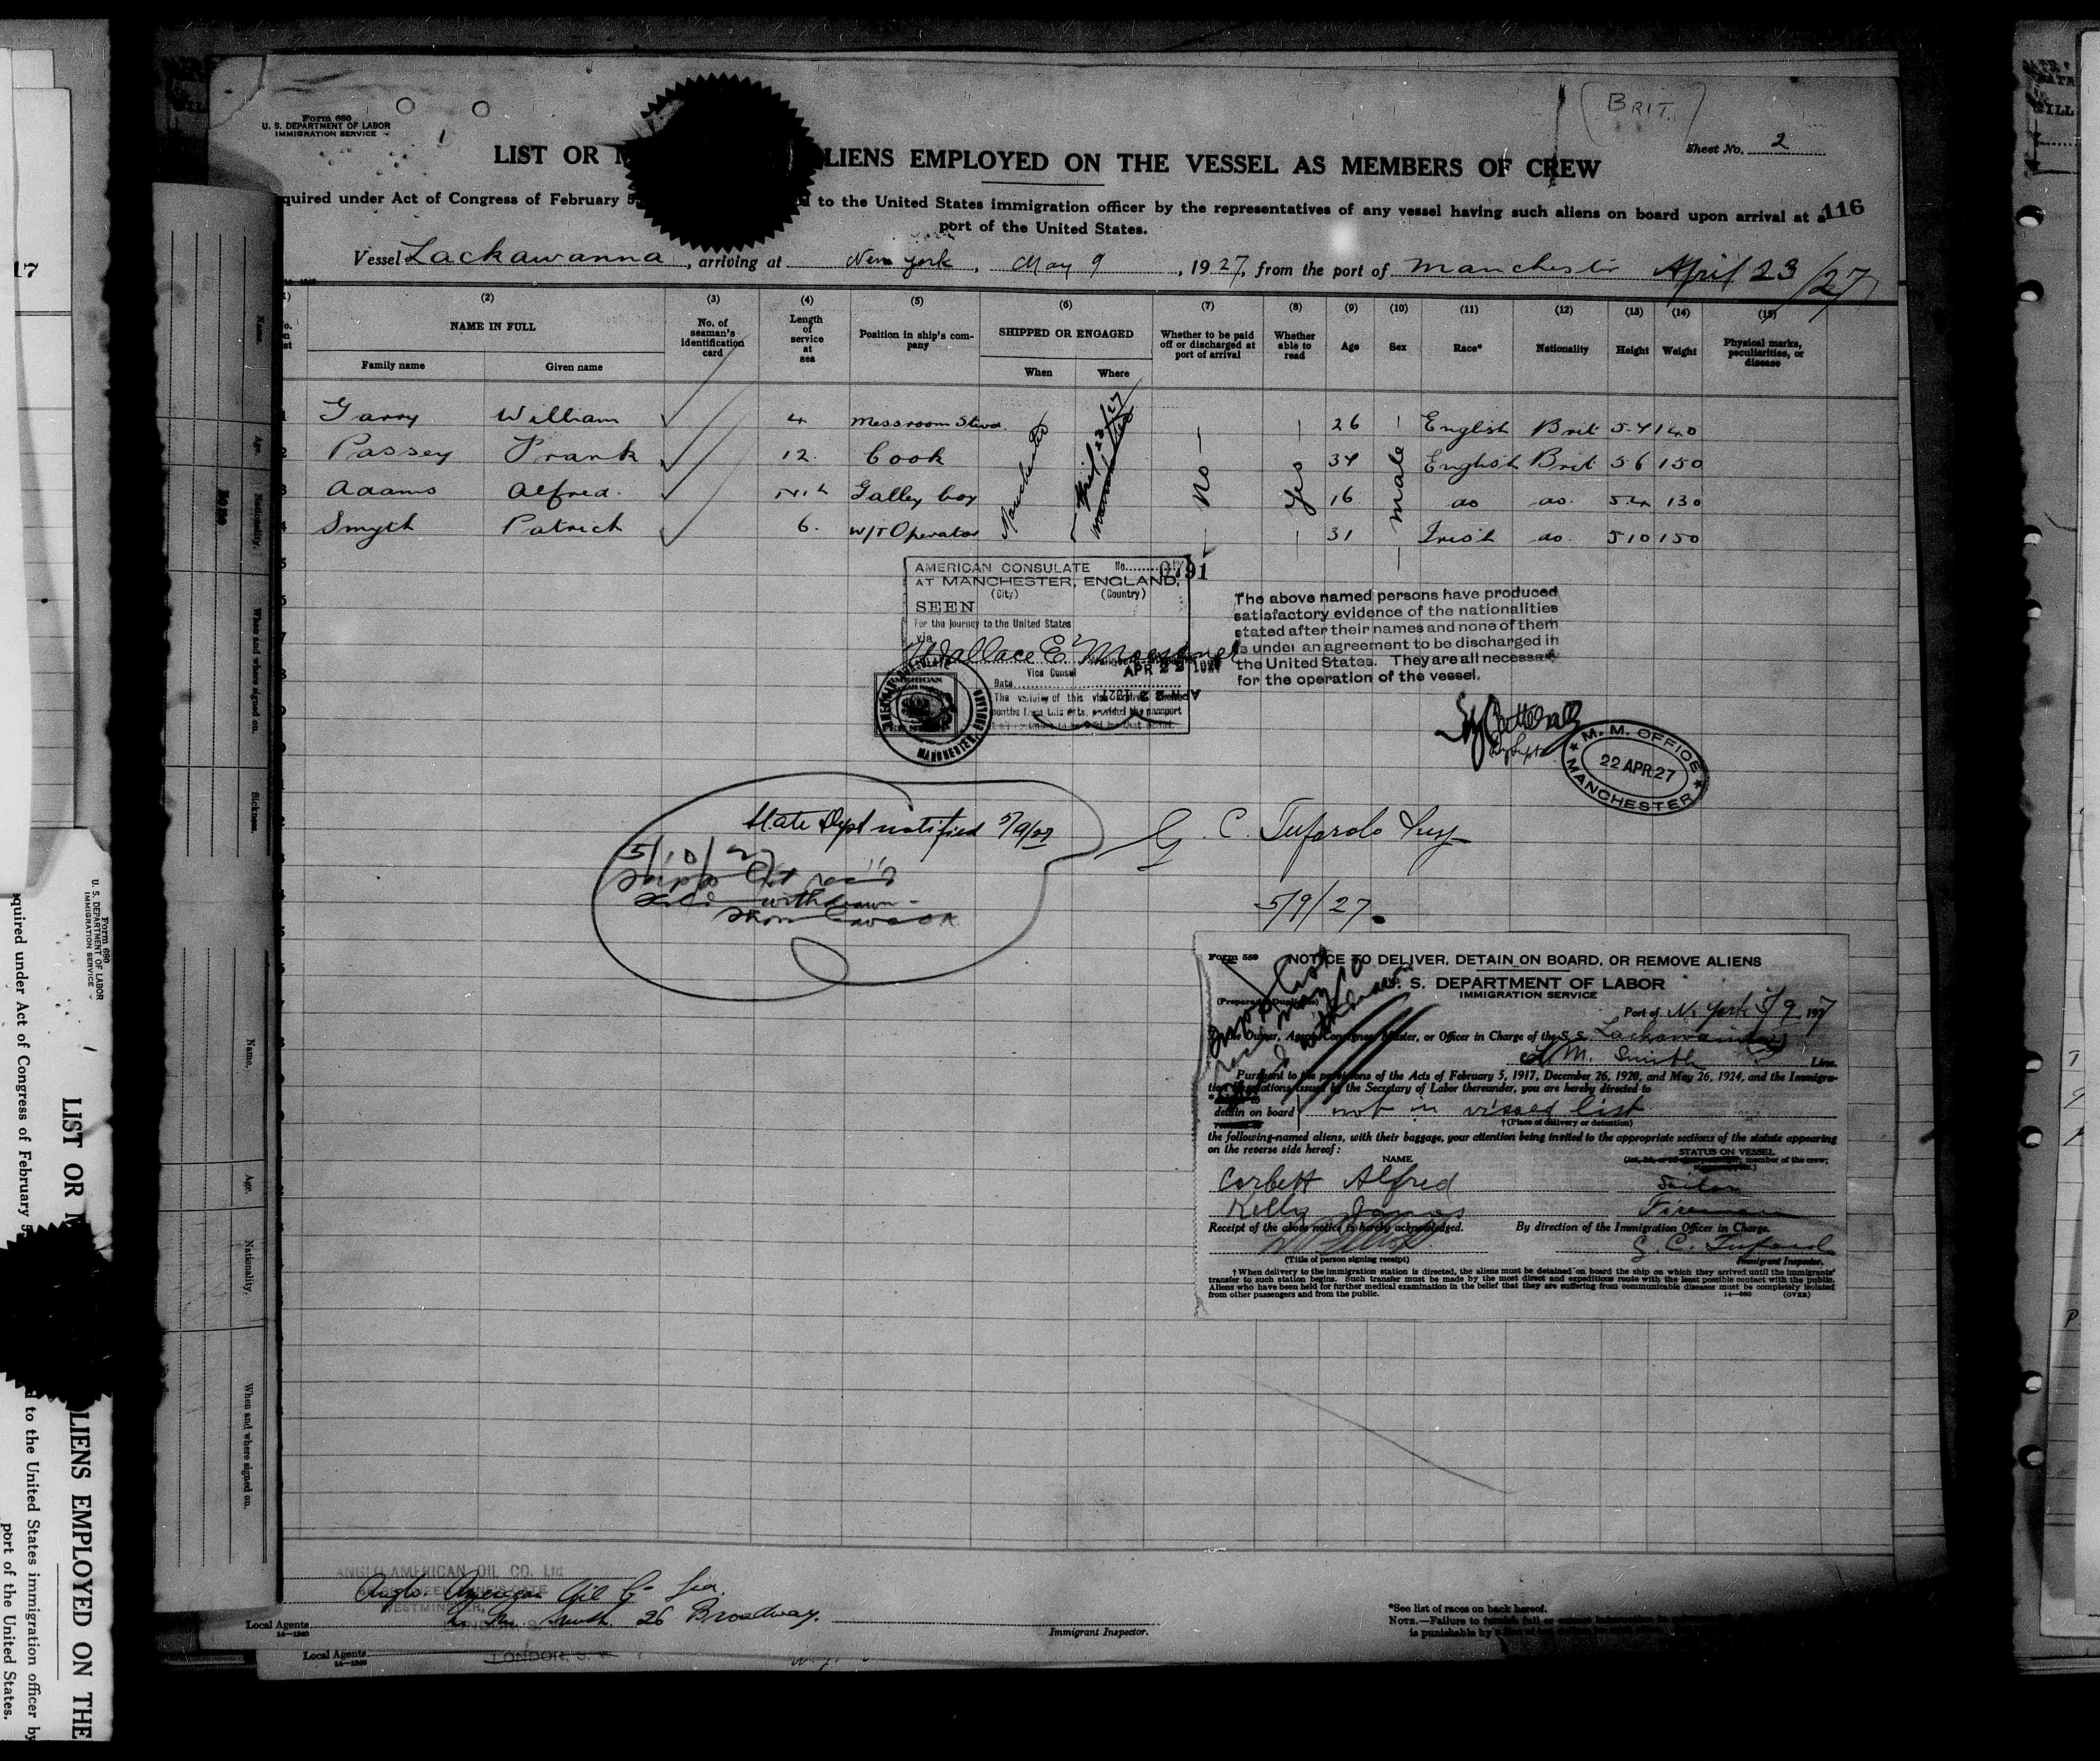 Form 680
U. S. DEPARTMENT OF LABOR
IMMIGRATION SERVICE
BRIT.
Sheet No. 2
LIST OR M LIENS EMPLOYED ON THE VESSEL AS MEMBERS OF CREW
quired under Act of Congress of February 5, to the United States immigration officer by the representatives of any vessel having such aliens on board upon arrival at a
116
port of the United States.
Vessel Lackawanna, arriving at New York, May 9, 1927, from the port of Manchester April 23/27
(2) (3) (4) (5) (6) (7) (8) (9) (10) (11) (12) (13) (14) (15)
NAME IN FULL
Family name Given name
No. of seaman's identification card
Length of service at sea
Position in ship's company
SHIPPED OR ENGAGED
When Where
Whether to be paid off or discharged at port of arrival
Whether able to read
Age
Sex
Race*
Nationality
Height
Weight
Physical marks, peculiarities, or disease
Garry William 4 Messroom Stwd. 26 English Brit 5.4 140
Passey Frank 12. Cook 34 English Brit 5 6 150
Adams Alfred. Galley boy 16 do do. 5.4 130
Smyth Patrick 6. W/T Operator 31 Irish do. 5 10 150
Manchester
April 23/27
No
Yes
male
AMERICAN CONSULATE No. 0791
AT MANCHESTER, ENGLAND,
(City) (Country)
SEEN
For the journey to the United States
via
Wallace E.
Vice Consul
Date
APR 22 1927
The validity of this
months from this date, provided the passport
MANCHESTER
The above named persons have produced
satisfactory evidence of the nationalities
stated after their names and none of them
is under an agreement to be discharged in
the United States. They are all necessary
for the operation of the vessel.
M. M. OFFICE
22 APR 27
MANCHESTER
State Dept notified 5/9/27
5/10/27
withdrawn
G. C. Tuford Insp
5/9/27.
Form 559 NOTICE TO DELIVER, DETAIN ON BOARD, OR REMOVE ALIENS
U. S. DEPARTMENT OF LABOR
IMMIGRATION SERVICE
(Prepare in Duplicate)
Port of N. York 5/9, 1927
The Owner, Agent, Consignee, Master, or Officer in Charge of the S. S. Lackawanna
L. M. Smith Line.
Pursuant to the provisions of the Acts of February 5, 1917, December 26, 1920, and May 26, 1924, and the Immigra-
tion Regulations issued by the Secretary of Labor thereunder, you are hereby directed to
detain on board not in visaed list
†(Place of delivery or detention)
the following-named aliens, with their baggage, your attention being invited to the appropriate sections of the statute appearing
on the reverse side hereof:
NAME STATUS ON VESSEL
member of the crew;
Corbett Alfred Sailor
Kelly James Fireman
Receipt of the above notice is hereby acknowledged. By direction of the Immigration Officer in Charge.
G. C. Tuford
(Title of person signing receipt) Immigrant Inspector.
†When delivery to the immigration station is directed, the aliens must be detained on board the ship on which they arrived until the immigrants'
transfer to such station begins. Such transfer must be made by the most direct and expeditious route with the least possible contact with the public.
Aliens who have been held for further medical examination in the belief that they are suffering from communicable diseases must be completely isolated
from other passengers and from the public. 14—660 (OVER)
ANGLO AMERICAN OIL CO. Ltd
QUEEN ANNE'S GATE
WESTMINSTER,
Anglo. American Oil Co
L. M. Smith. 26 Broadway.
Local Agents
14—1240
Immigrant Inspector.
*See list of races on back hereof.
NOTE.—Failure to furnish full or
is punishable by
Local Agents
14—1240
LONDON, S. W.
Name.
Age.
Nationality.
When and where signed on.
Sickness.
Name.
Age.
Nationality.
When and where signed on.
17
Form 680
U. S. DEPARTMENT OF LABOR
IMMIGRATION SERVICE
LIST OR M LIENS EMPLOYED ON THE
quired under Act of Congress of February 5, to the United States immigration officer by
port of the United States.